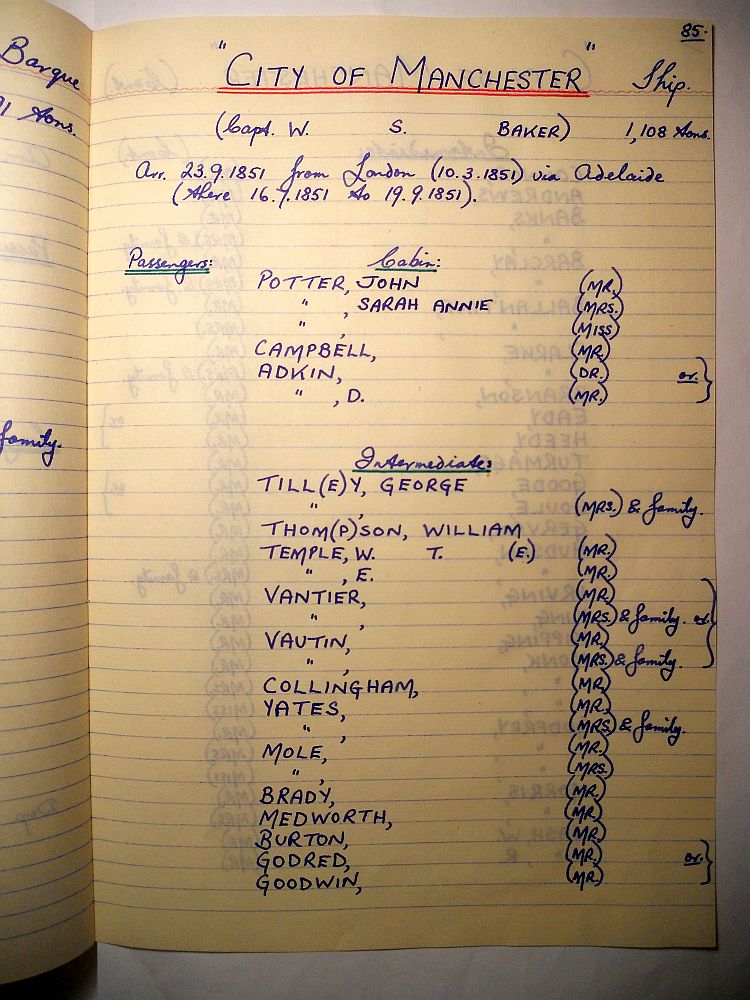 85.
Barque
"CITY OF MANCHESTER" Ship.
91 tons.
(Capt. W. S. BAKER) 1,108 tons.
Arr. 23.9.1851 from London (10.3.1851) via Adelaide
(there 16.9.1851 to 19.9.1851).
Passengers: Cabin:
POTTER, JOHN (MR.)
" , SARAH ANNIE (MRS.)
" , (MISS)
CAMPBELL, (MR.)
ADKIN, (DR.) or. }
" , D. (MR.)
family.
Intermediate:
TILL(E)Y, GEORGE
" , (MRS.) & family.
THOM(P)SON, WILLIAM
TEMPLE, W. T. (E.) (MR.)
" , E. (MR.)
VANTIER, (MR.)
" , (MRS.) & family. or. }
VAUTIN, (MR.)
" , (MRS.) & family.
COLLINGHAM, (MR.)
YATES, (MR.)
" , (MRS.) & family.
MOLE, (MR.)
" , (MRS.)
BRADY, (MR.)
MEDWORTH, (MR.)
BURTON, (MR.)
GODRED, (MR.) or. }
GOODWIN, (MR.)